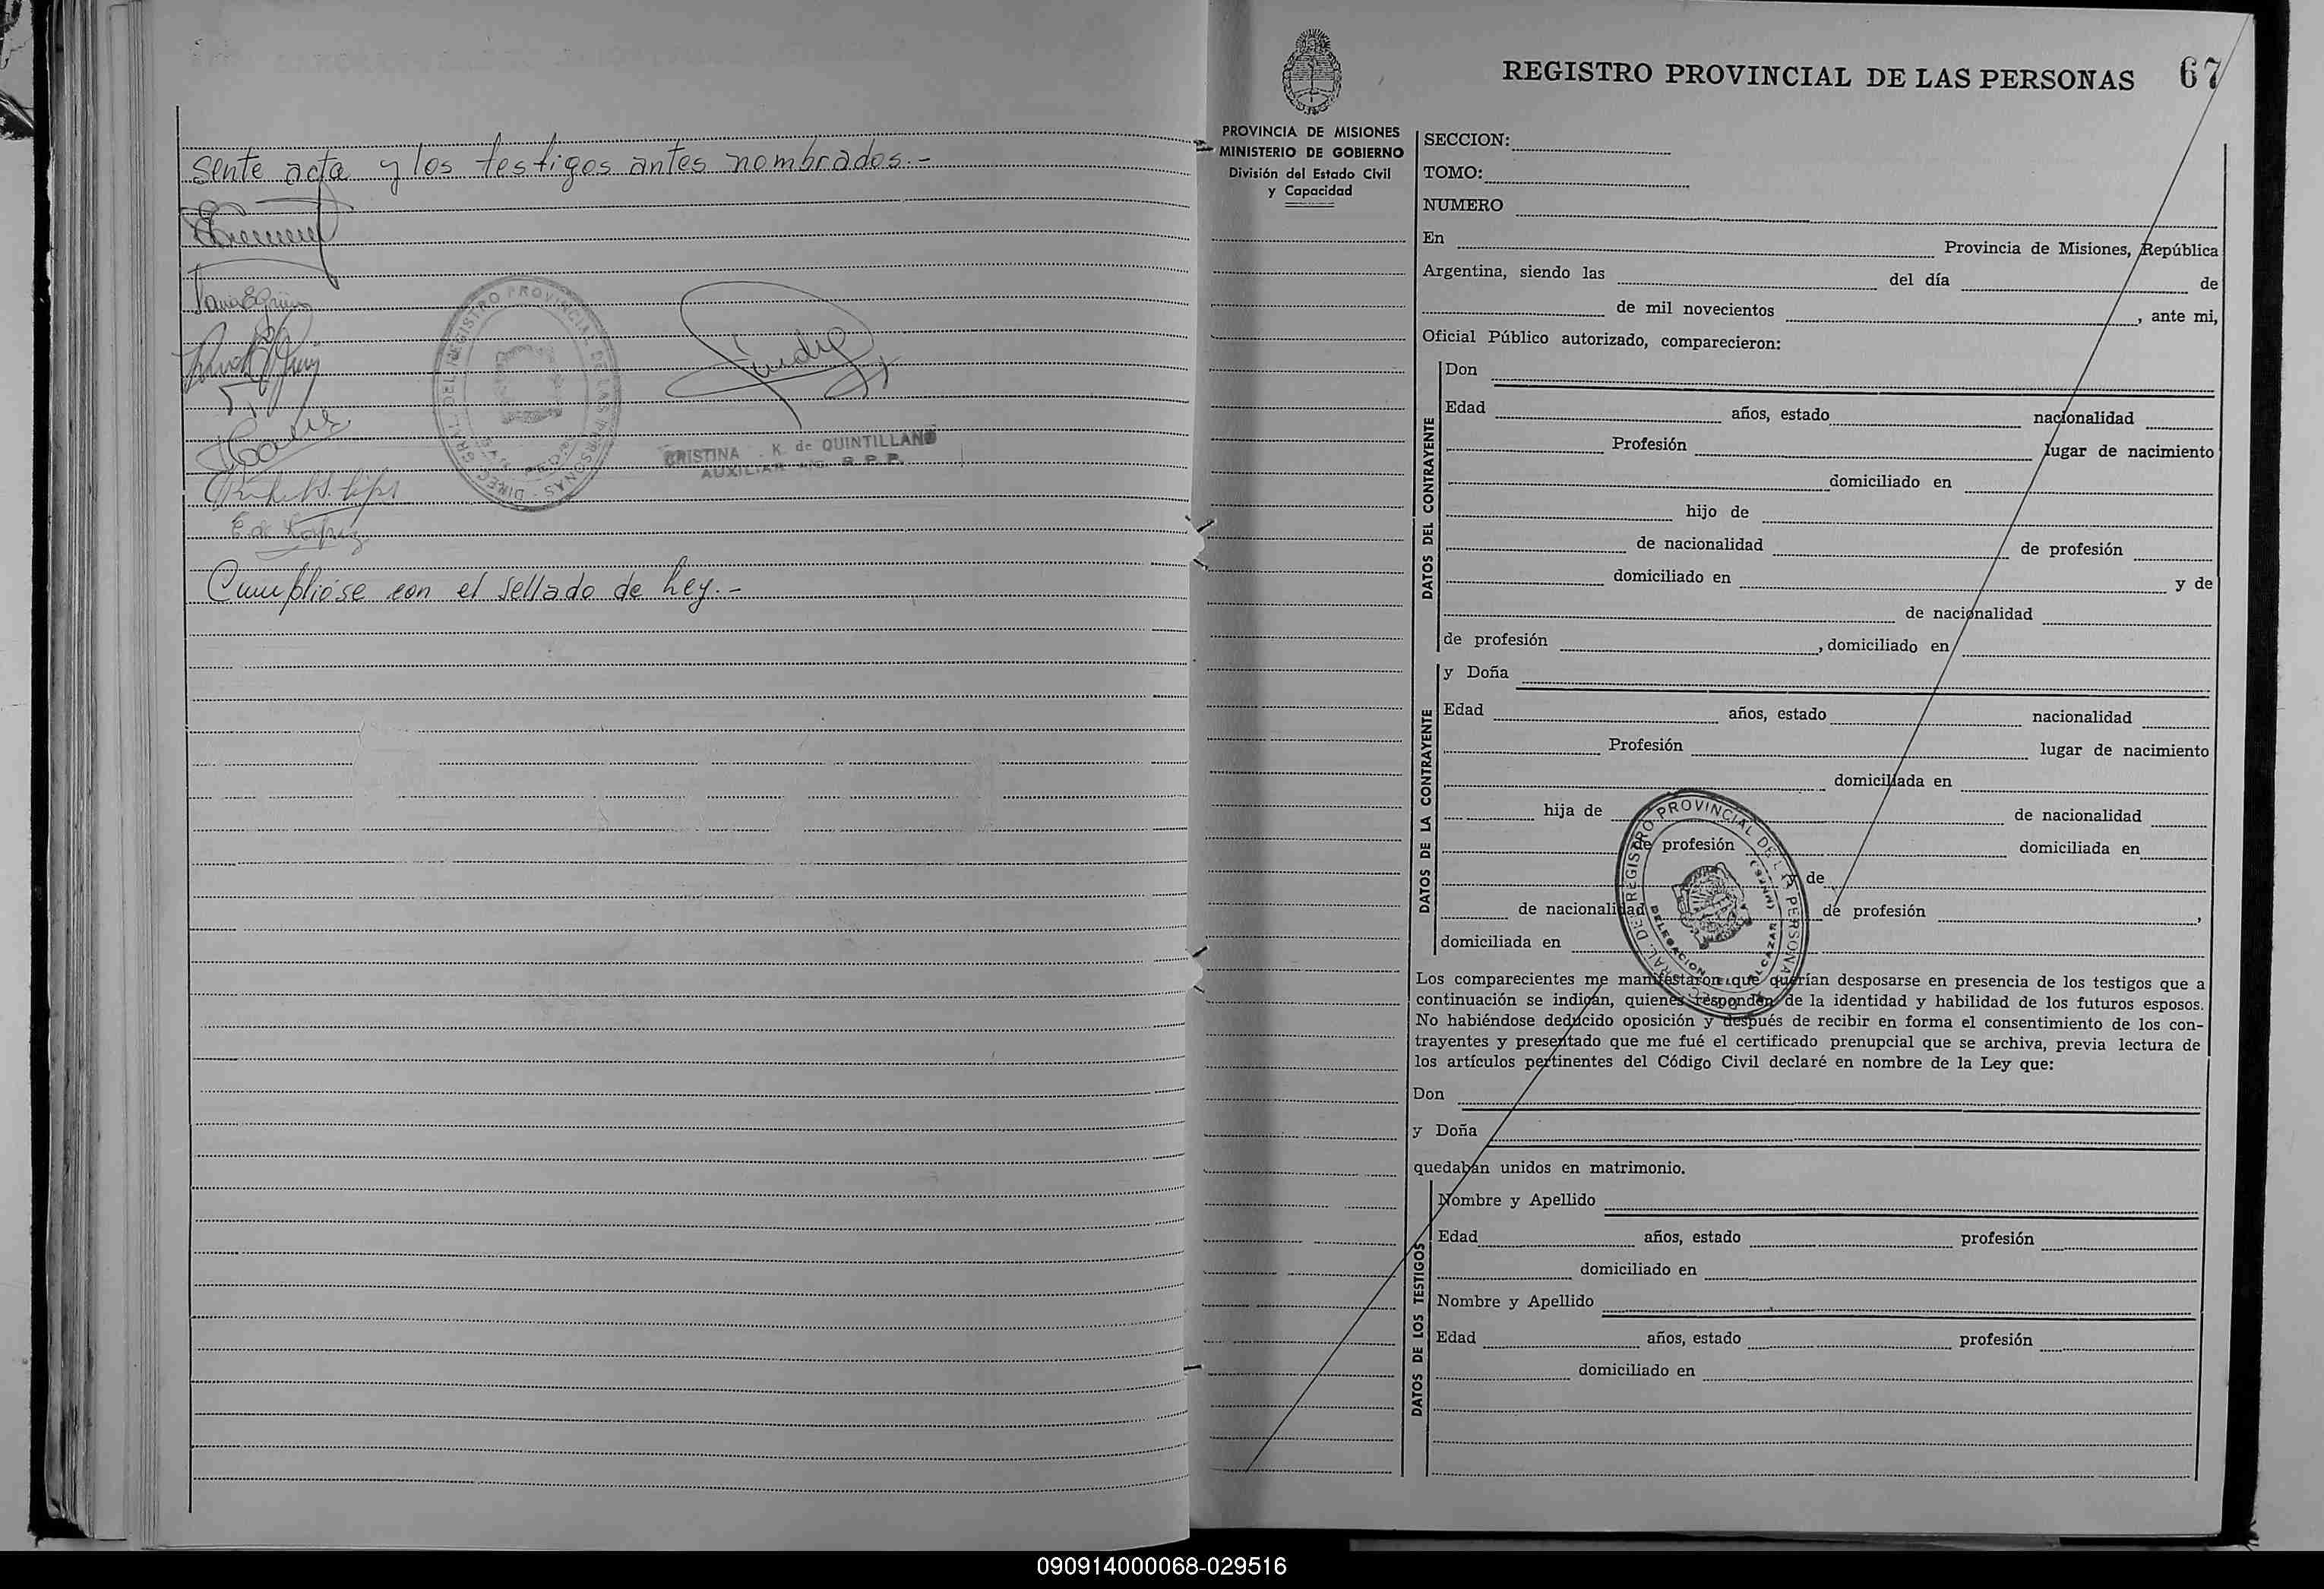 sente acta y los testigos antes nombrados.-
DIREC. GRAL. DEL REGISTRO PROVINCIAL DE LAS PERSONAS
CRISTINA K. de QUINTILLAN
AUXILIAR R.P.P.
E. de
Cumplióse con el sellado de Ley.-
REGISTRO PROVINCIAL DE LAS PERSONAS 67
PROVINCIA DE MISIONES
MINISTERIO DE GOBIERNO
División del Estado Civil
y Capacidad
SECCION:
TOMO:
NUMERO
En Provincia de Misiones, República
Argentina, siendo las del día de
de mil novecientos , ante mi,
Oficial Público autorizado, comparecieron:
DATOS DEL CONTRAYENTE
Don
Edad años, estado nacionalidad
Profesión lugar de nacimiento
domiciliado en
hijo de
de nacionalidad de profesión
domiciliado en y de
de nacionalidad
de profesión , domiciliado en
DATOS DE LA CONTRAYENTE
y Doña
Edad años, estado nacionalidad
Profesión lugar de nacimiento
domiciliada en
hija de de nacionalidad
de profesión domiciliada en
y de
de nacionalidad de profesión ,
domiciliada en
REGISTRO PROVINCIAL DE LAS PERSONAS
DELEGACION ALCAZAR (MNES)
Los comparecientes me manifestaron que querían desposarse en presencia de los testigos que a
continuación se indican, quienes responden de la identidad y habilidad de los futuros esposos.
No habiéndose deducido oposición y después de recibir en forma el consentimiento de los con-
trayentes y presentado que me fué el certificado prenupcial que se archiva, previa lectura de
los artículos pertinentes del Código Civil declaré en nombre de la Ley que:
Don
y Doña
quedaban unidos en matrimonio.
DATOS DE LOS TESTIGOS
Nombre y Apellido
Edad años, estado profesión
domiciliado en
Nombre y Apellido
Edad años, estado profesión
domiciliado en
090914000068-029516